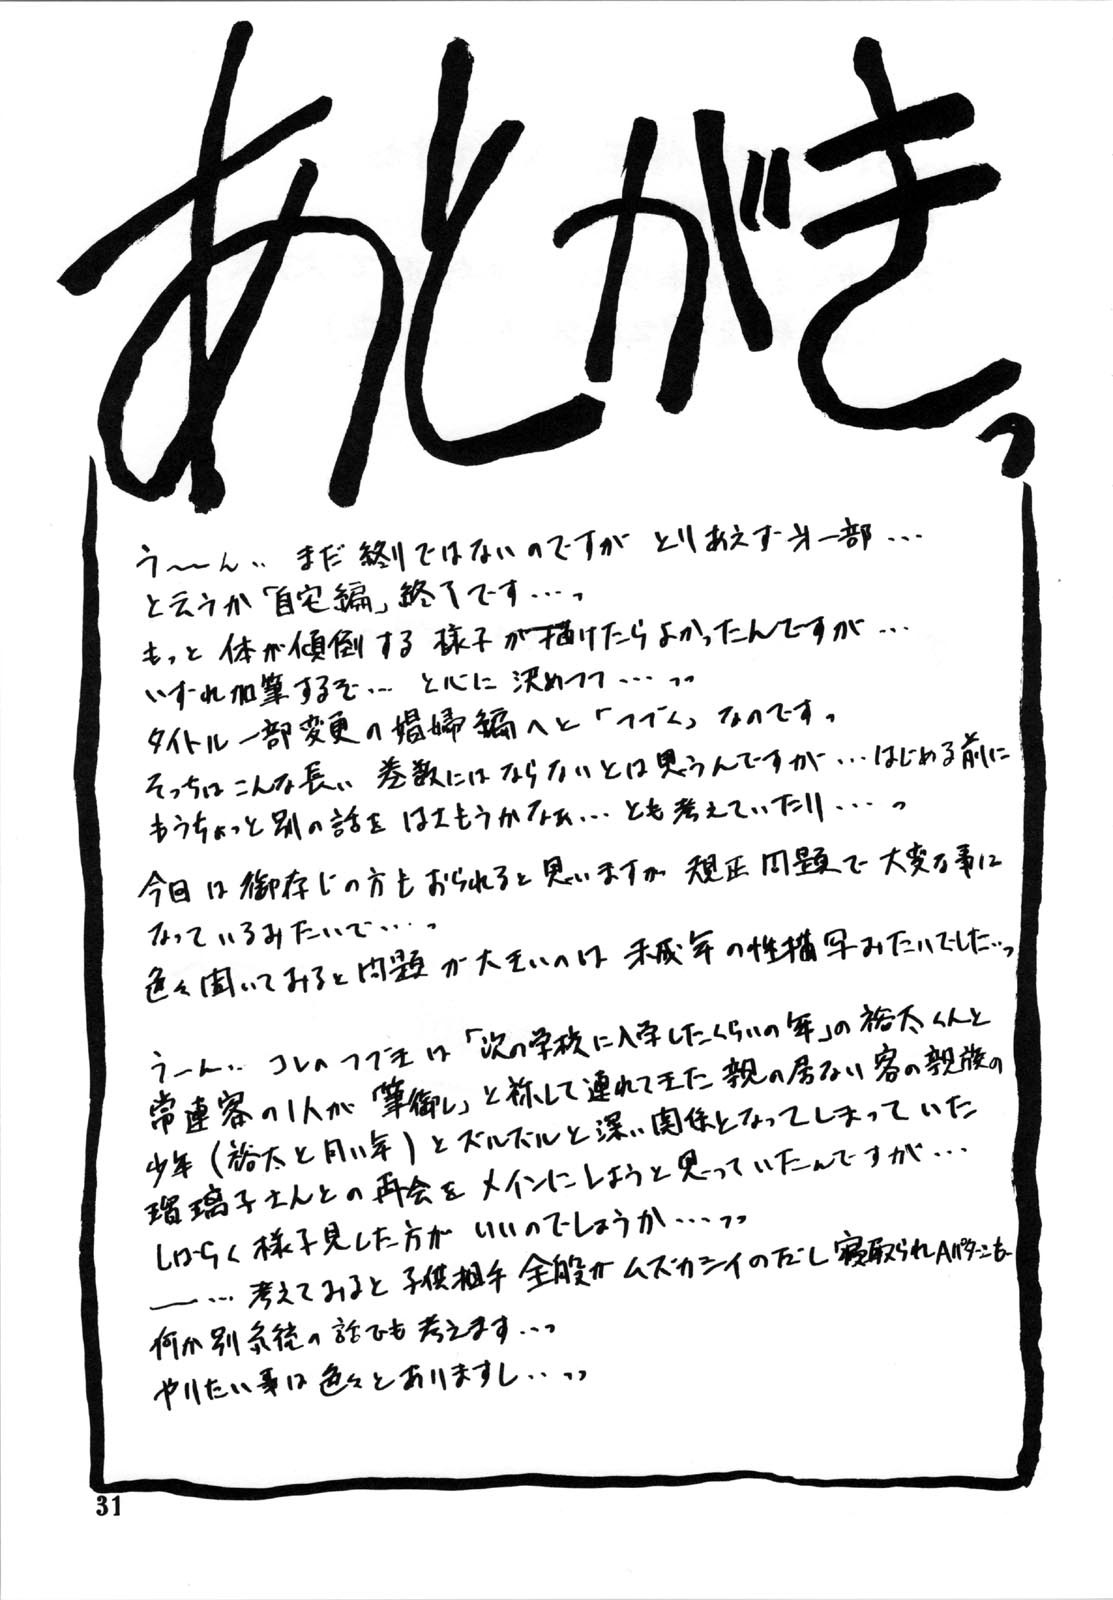 あとがきっ
う〜〜ん‥ まだ終りではないのですが とりあえず 第一部…
と云うか「自宅編」終了です…っ
もっと 体が傾倒する 様子が描けたらよかったんですが…
いずれ加筆するぞ… と心に 決めつつ…っっ
タイトル一部変更の娼婦編へと「つづく」なのです。
そっちはこんな長い 巻数にはならないとは思うんですが…はじめる前に
もうちょっと別の話を はさもうかなぁ… とも考えていたり…っ
今回は御存じの方もおられると思いますが 規正問題で大変な事に
なっているみたいで…っ
色々聞いてみると問題が大きいのは 未成年の性描写みたいでした…っ
うーん‥ コレのつづきは「次の学校に入学したくらいの年」の裕太くんと
常連客の1人が「筆御し」と称して連れてきた 親の居ない 客の親族の
少年(裕太と同い年)とズルズルと深い関係となってしまっていた
瑠璃子さんとの再会を メインにしようと思っていたんですが…
しばらく様子見した方が いいのでしょうか…っっ
ー… 考えてみると 子供相手 全般が ムズカシイのだし 寝取られAパターンも
何か別系統の話でも考えます…っ
やりたい事は色々とありますし…っっ
31